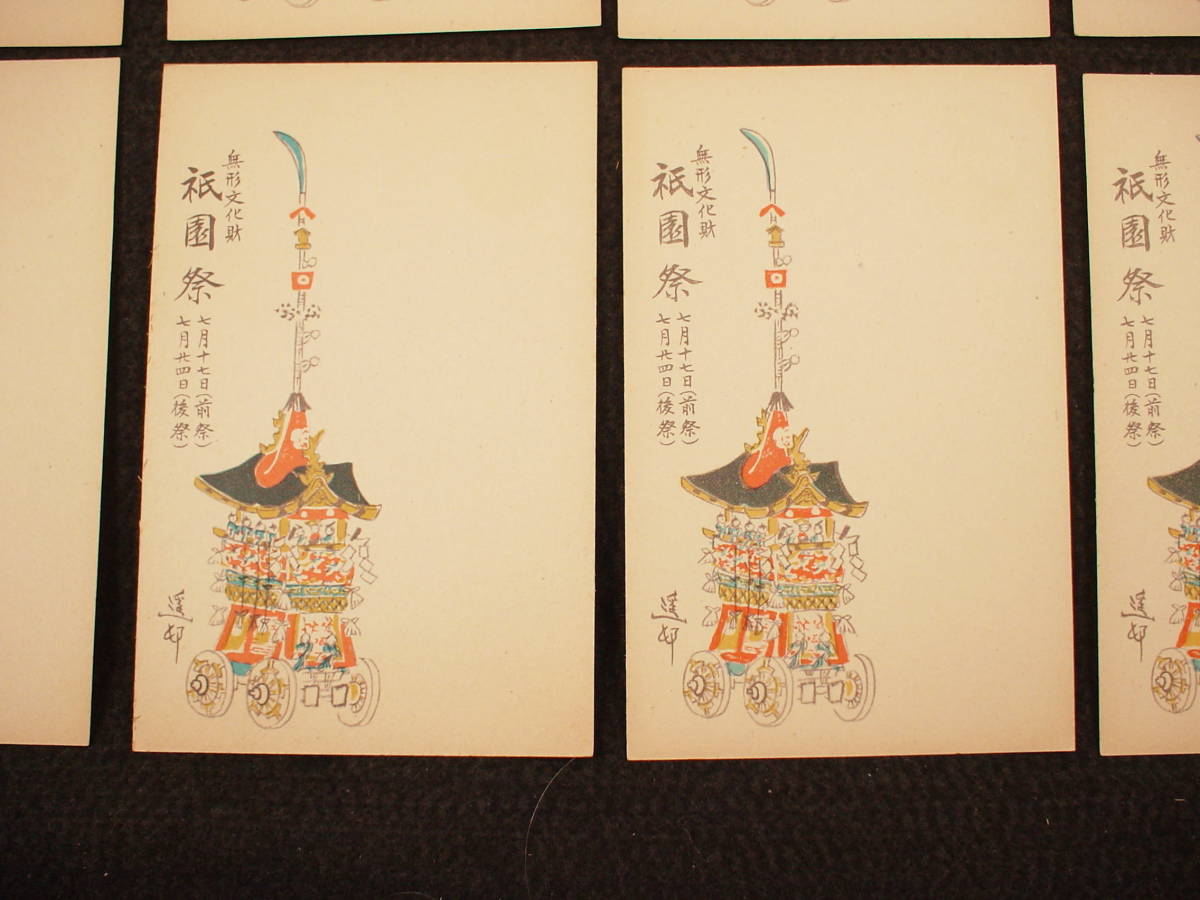 無形文化財
祇園祭
七月十七日(前祭)
七月廿四日(後祭)
遙邨
無形文化財
祇園祭
七月十七日(前祭)
七月廿四日(後祭)
遙邨
無形文化財
祇園祭
七月十七日(前祭)
七月廿四日(後祭)
遙邨